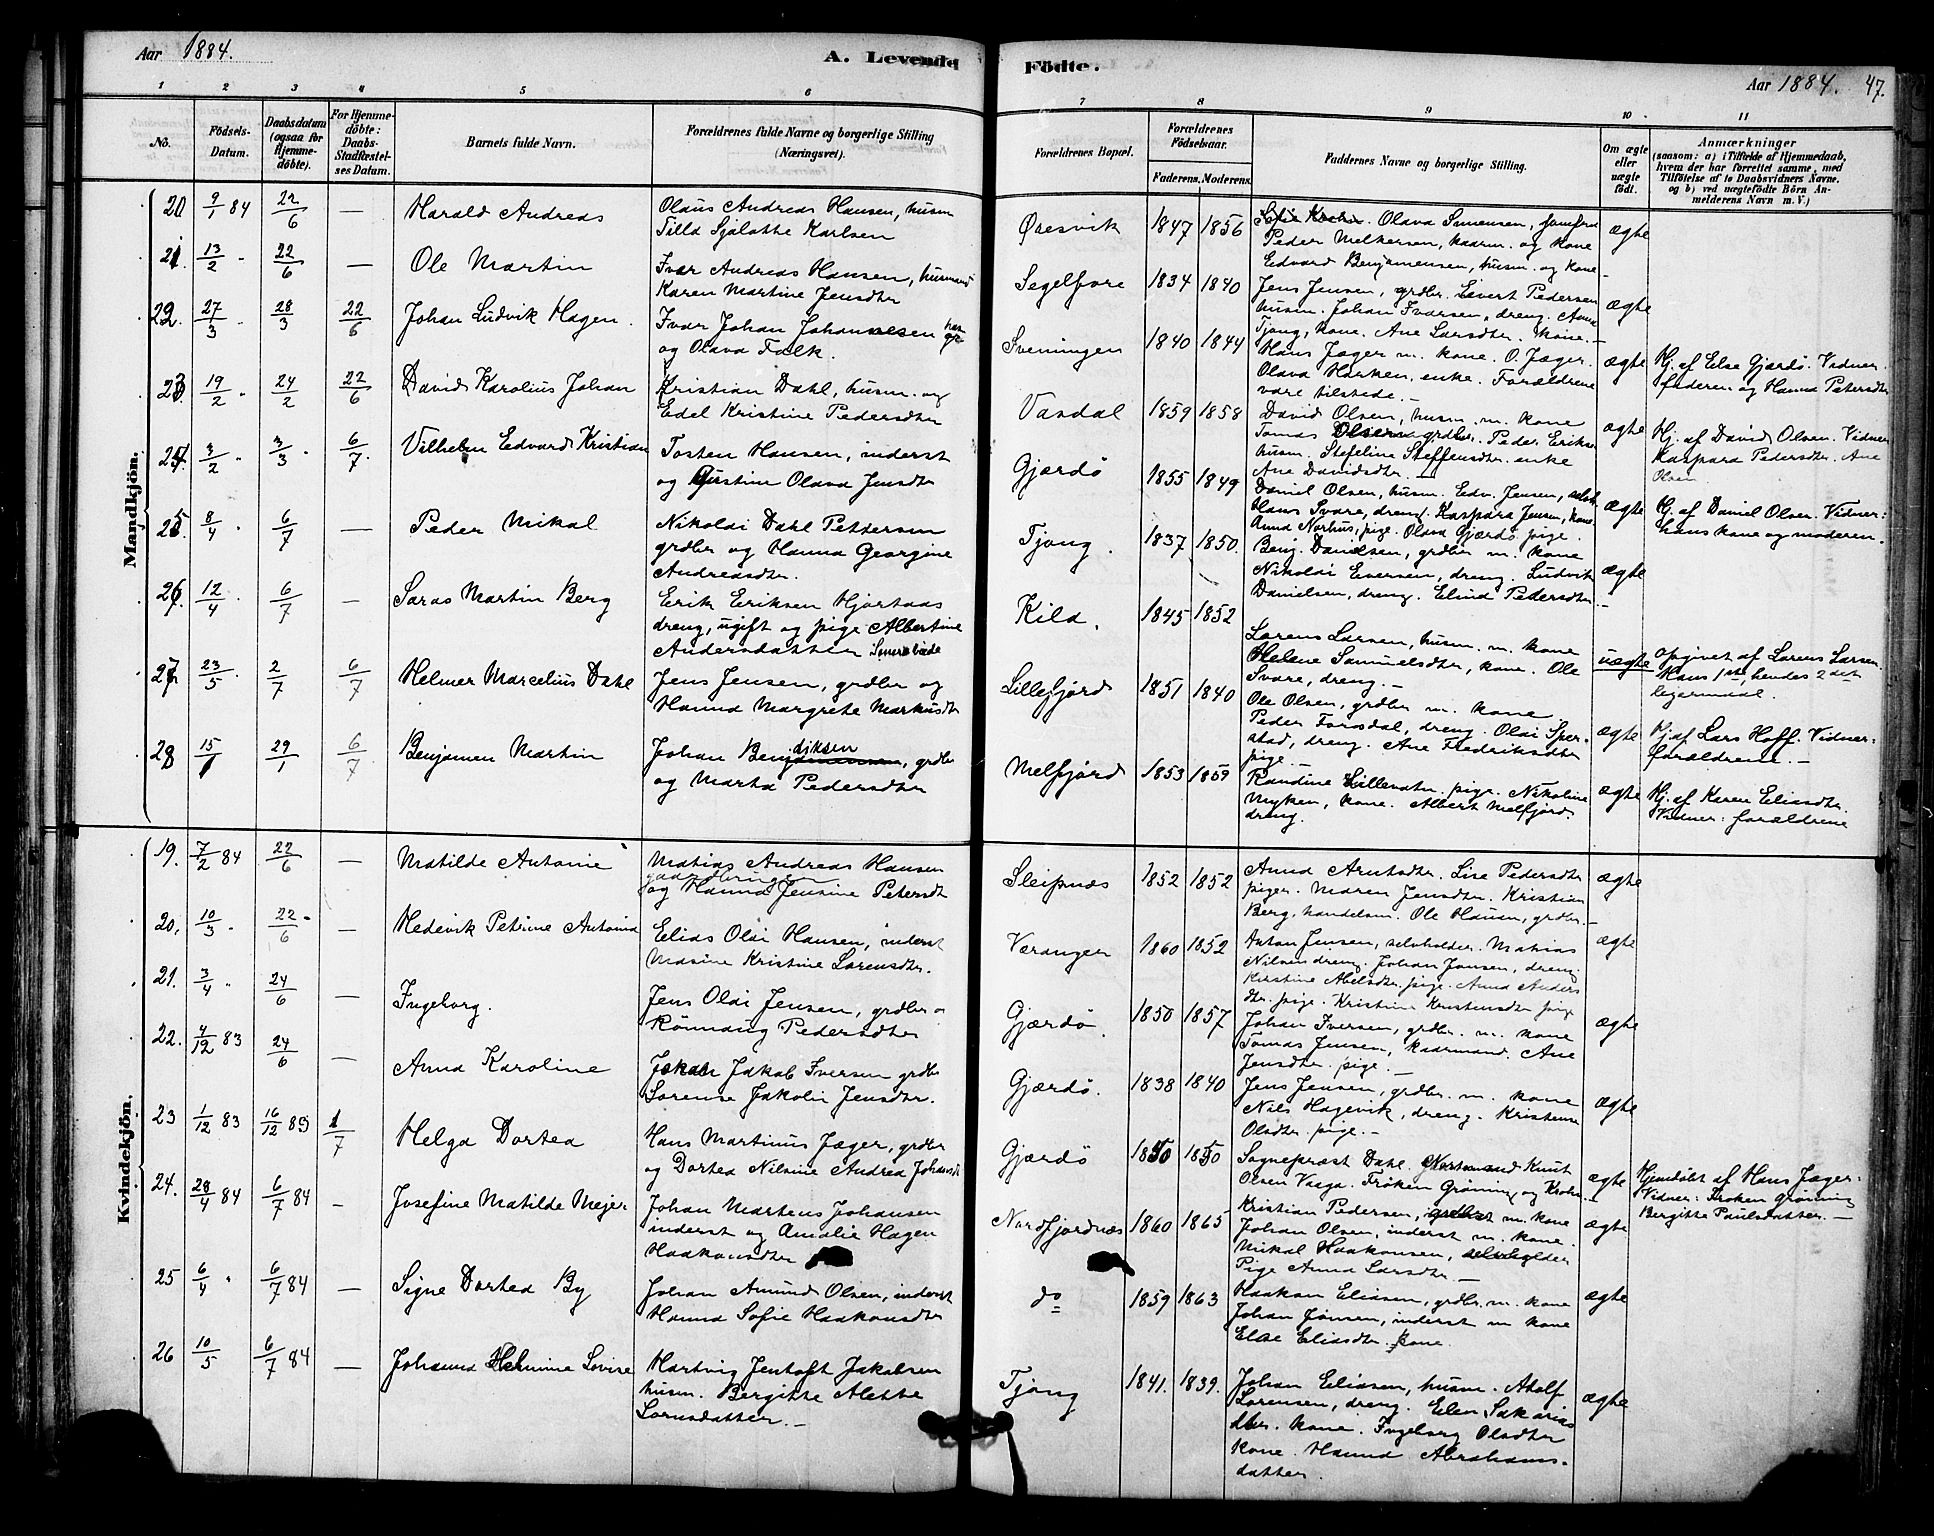 Aar 1884.
A. Levende Födte.
Aar 1884. 47.
1 2 3 4 5 6 7 8 9 10 11
No. Födsels-Datum. Daabsdatum (ogsaa for Hjemmedöbte). For Hjemmedöbte: Daabs-Stadfæstelses Datum. Barnets fulde Navn. Forældrenes fulde Navne og borgerlige Stilling (Næringsvei). Forældrenes Bopæl. Forældrenes Födselsaar. Faderens. Moderens. Faddernes Navne og borgerlige Stilling. Om ægte eller uægte födt. Anmærkninger (saasom: a) i Tilfælde af Hjemmedaab, hvem der har forrettet samme, med Tilföielse af to Daabsvidners Navne, og b) ved uægtefödte Börn Anmelderens Navn m. V.)
Mandkjön.
20 9/1 84 22/6 — Harald Andreas
Olaus Andreas Hansen, husm
Tilla Sjalotte Karlsen
Øresvik 1847 1856
Olava Simensen, jomfru
Peder Melkersen, kaarm. og kone
Edvard Benjamensen, husm. og kone —
ægte
21. 13/2 " 22/6 — Ole Martin
Ivar Andreas Hansen, husmand
Karen Martine Jensdtr
Segelfore 1834 1840
Jens Jensen, grdbr. Sivert Pedersen
husm. Johan Iversen, dreng. Anna
Tjong, kone. Ane Larsdtr. kone. —
ægte
22. 27/3 " 28/3 22/6 Johan Ludvik Hagen.
Ivar Johan Johannesen
og Olava Falk.
Sveningen 1840 1844
Hans Jæger m. kone. O. Jæger.
Olava Horken. enke. Forældrene
vare tilstede. —
ægte
Hj. af Else Gjærdö. Vidner
faderen og Hanna Petersdtr
23. 19/2 " 24/2 22/6 David Karolius Johan
Kristian Dahl, husm. og
Edel Kristine Pedersdtr
Vasdal 1859 1858
David Olsen, husm. m. kone
Tomas Olsen grdbr. Peder Eriksen
husm. Stefeline Steffensdtr. enke
Ane Davidsdtr. —
ægte
Hj. af David Olsen. Vidner
Kaspara Pedersdtr. Ane
Olsen
24. 3/2 " 3/3 " 6/7 Vilhelm Edvard Kristian
Tosten Hansen, inderst
og Gjustine Olava Jensdtr
Gjærdö 1855 1849
Daniel Olsen, husm. Edv. Jensen, selvh.
Hans Svare, dreng. Kaspara Jensen, kone
Anna Norhus, pige. Olava Gjærdö pige.
ægte
Hj. af Daniel Olsen. Vidner:
hans kone og moderen.
25. 8/4 " 6/7 — Peder Mikal
Nikolai Dahl Pettersen
grdbr og Hanna Georgine
Andreasdtr.
Tjong. 1837 1850.
Benj. Danielsen, grdbr m. kone
Nikolai Evensen, dreng. Ludvik
Danielsen, dreng. Elind Pedersdtr. —
ægte
26. 12/4 " 6/7 — Saras Martin Berg
Erik Eriksen Hjortaas
dreng, ugift og pige Albertine
Andersdatter
Kila. 1845 1852
Lorens Larsen, husm. m. kone
Helene Samuelsdtr, kone. Ole
Svare, dreng. —
uægte
Opgivet af Lorens Larsen.
Hans 1ste, hendes 2det
leiermaal.
27. 23/5 " 2/7 6/7 Helmer Marcelius Dahl
Jens Jensen, grdbr og
Hanna Margrete Markusdtr
Lillefjord 1851 1840
Ole Olsen, grdbr m. kone
Peder Forsdal, dreng. Olai Sper-
stad, dreng. Ane Fredriksdtr
pige. —
ægte
Hj. af Lars Hoff. Vidner:
forældrene. —
28 15/1 29/1 6/7 Benjamen Martin
Johan Bendiksen, grdbr
og Marta Pedersdtr
Melfjord 1853 1859
Randine Lillevatn, pige. Nikoline
Myken, kone. Albert Melfjord
dreng.
ægte
Hj. af Karen Eliasdtr.
Vidner: forældrene
Kvindekjön.
19. 7/2 84 22/6 — Matilde Antonie
Matias Andreas Hansen
gaardbruger
og Hanna Jensine Petersdt
Sleipnæs 1852 1852
Anna Arntsdtr. Lise Pedersdtr
piger. Maren Jensdtr. Kristian
Berg, handelsm. Ole Hansen, grdbr. —
ægte
20. 10/3 " 22/6 " — Hedevik Petrine Antonia
Elias Olai Hansen, inderst
Masine Kristine Sørensdtr.
Væranger 1860 1852
Anton Jensen, selvholder. Matias
Nilsen dreng. Johan Jonsen, dreng.
Kirstine Abelsdtr. pige. Anna Anders
dtr. pige. Kristine Kristensdtr pige
ægte
21. 3/4 " 24/6 — Ingeborg.
Jens Olai Jensen, grdbr o
Rönnaug Pedersdtr
Gjærdö. 1850 1857
Johan Iversen, grdbr. m. kone
Tomas Jensen, kaarmand. Ane
Jensdtr. pige. —
ægte
22. 4/12 83 24/6 — Anna Karoline
Jakob Iversen grdbr
Sorense Jakolie Jensdtr.
Gjærdö. 1838 1840
Jens Jensen, grdbr. m. kone
Nils Hagevik, dreng. Kristense
Olsdtr. pige. —
ægte
23 1/12 83 16/12 83 1/7 Helga Dortea
Hans Martinus Jæger, grdbr
og Dortea Nilsine Andrea Johansdt
Gjærdö 1850 1850
Sogneprest Dahl. Knut
Olsen Vaaga. Fröken Gröning og Krohn.
ægte
Hjemdöbt af Hans Jæger:
Vidner: Froken Gröning
Bergitte Paulsdatter. —
24. 28/4 84 6/7 84 — Josefine Matilde Mejer
Johan Martens Johansen
inderst og Amalie Hagen
Haakonsdtr
Nordfjordnæs 1860 1865
Kristian Pedersen, m. kone
Johan Olsen, inderst m. kone.
Mikal Haakonsen, selveholder
Pige Anna Larsdtr. —
ægte
25 6/4 " 6/7 84 — Signe Dortea By
Johan Amund Olsen, inderst
Hanna Sofie Haakonsdtr
do 1859 1863
Haakon Eliasen, grdbr. m. kone
Johan Jönsen, inderst m kone
Else Eliasdtr. kone.
ægte
26 10/5 6/7 84 — Johanna Helmine Lovise
Hartvig Jentoft Jakobsen
husm. Bergitte Alette
Sörnsdatter. —
Tjong 1841. 1839.
Johan Eliasen, husm. Adolf
Sørensen, dreng. Elen Sakarias
dtr. kone. Ingeborg Olsdtr
Kone. Hanna Abrahams-
datter.
ægte